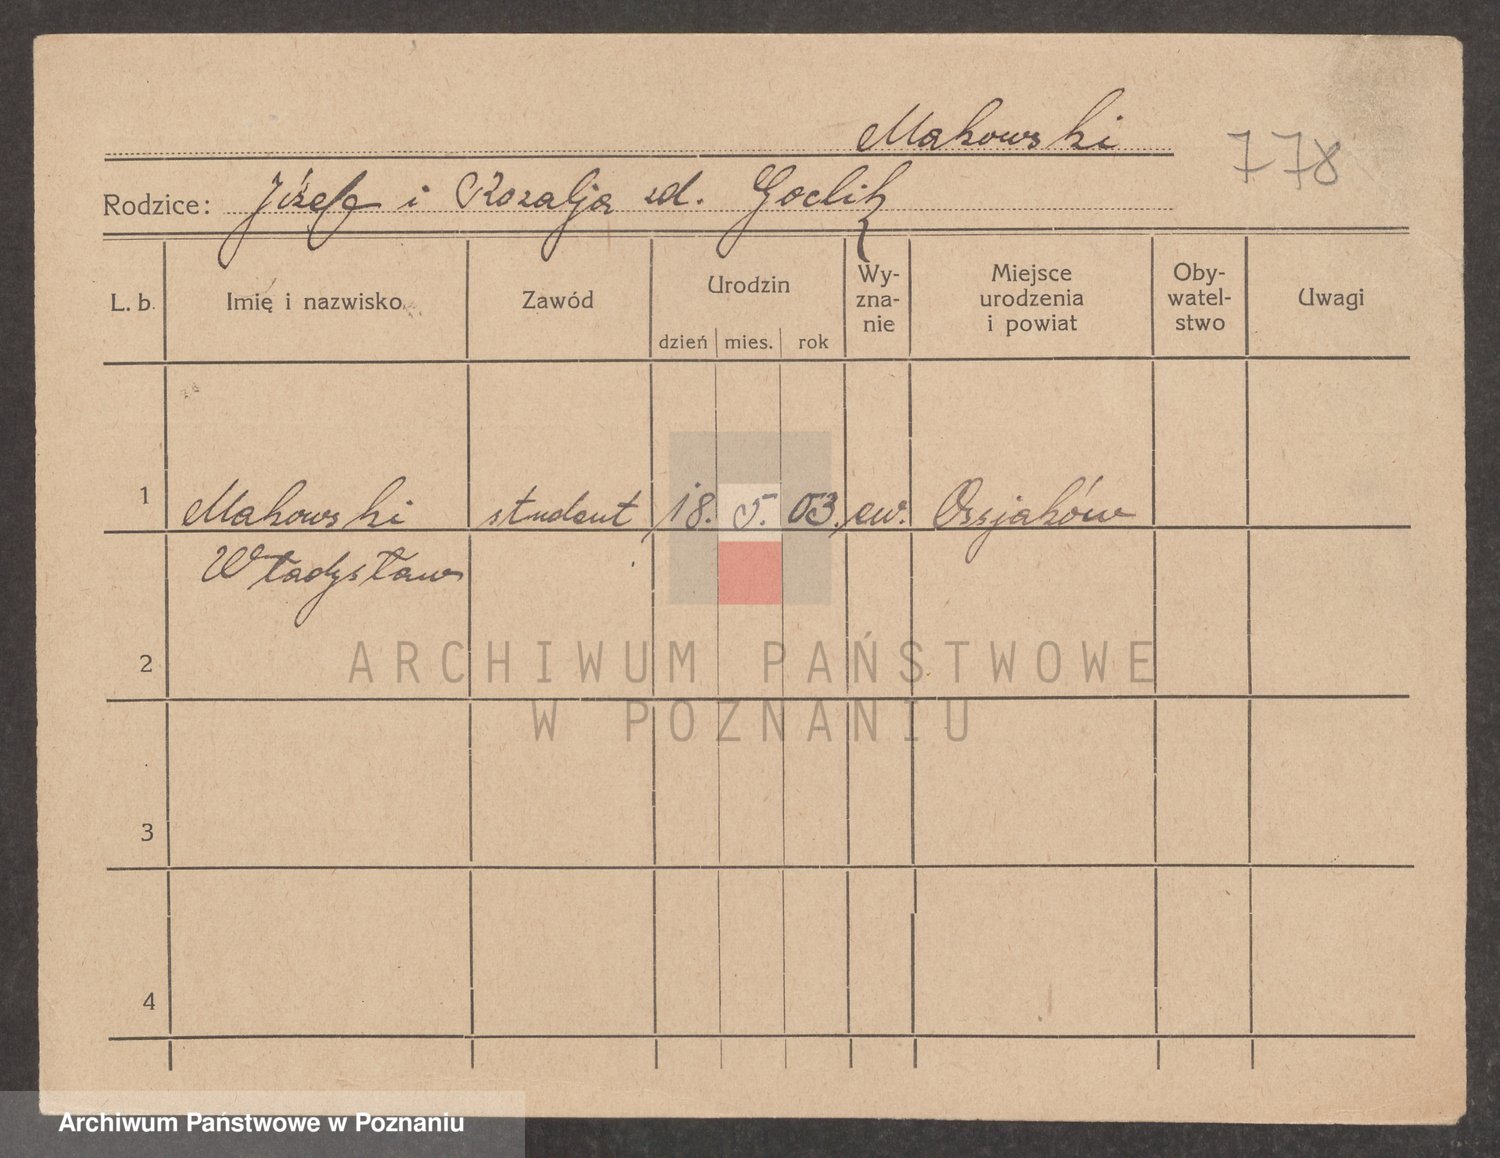 Makowski
778
Rodzice: Józef i Rozalja zd. Goclik
L. b. Imię i nazwisko Zawód Urodzin dzień mies. rok Wy-zna-nie Miejsce urodzenia i powiat Oby-watel-stwo Uwagi
1 Makowski student 18. 5. 03. ew. Ossjaków
Władysław
2
ARCHIWUM PAŃSTWOWE
W POZNANIU
3
4
Archiwum Państwowe w Poznaniu